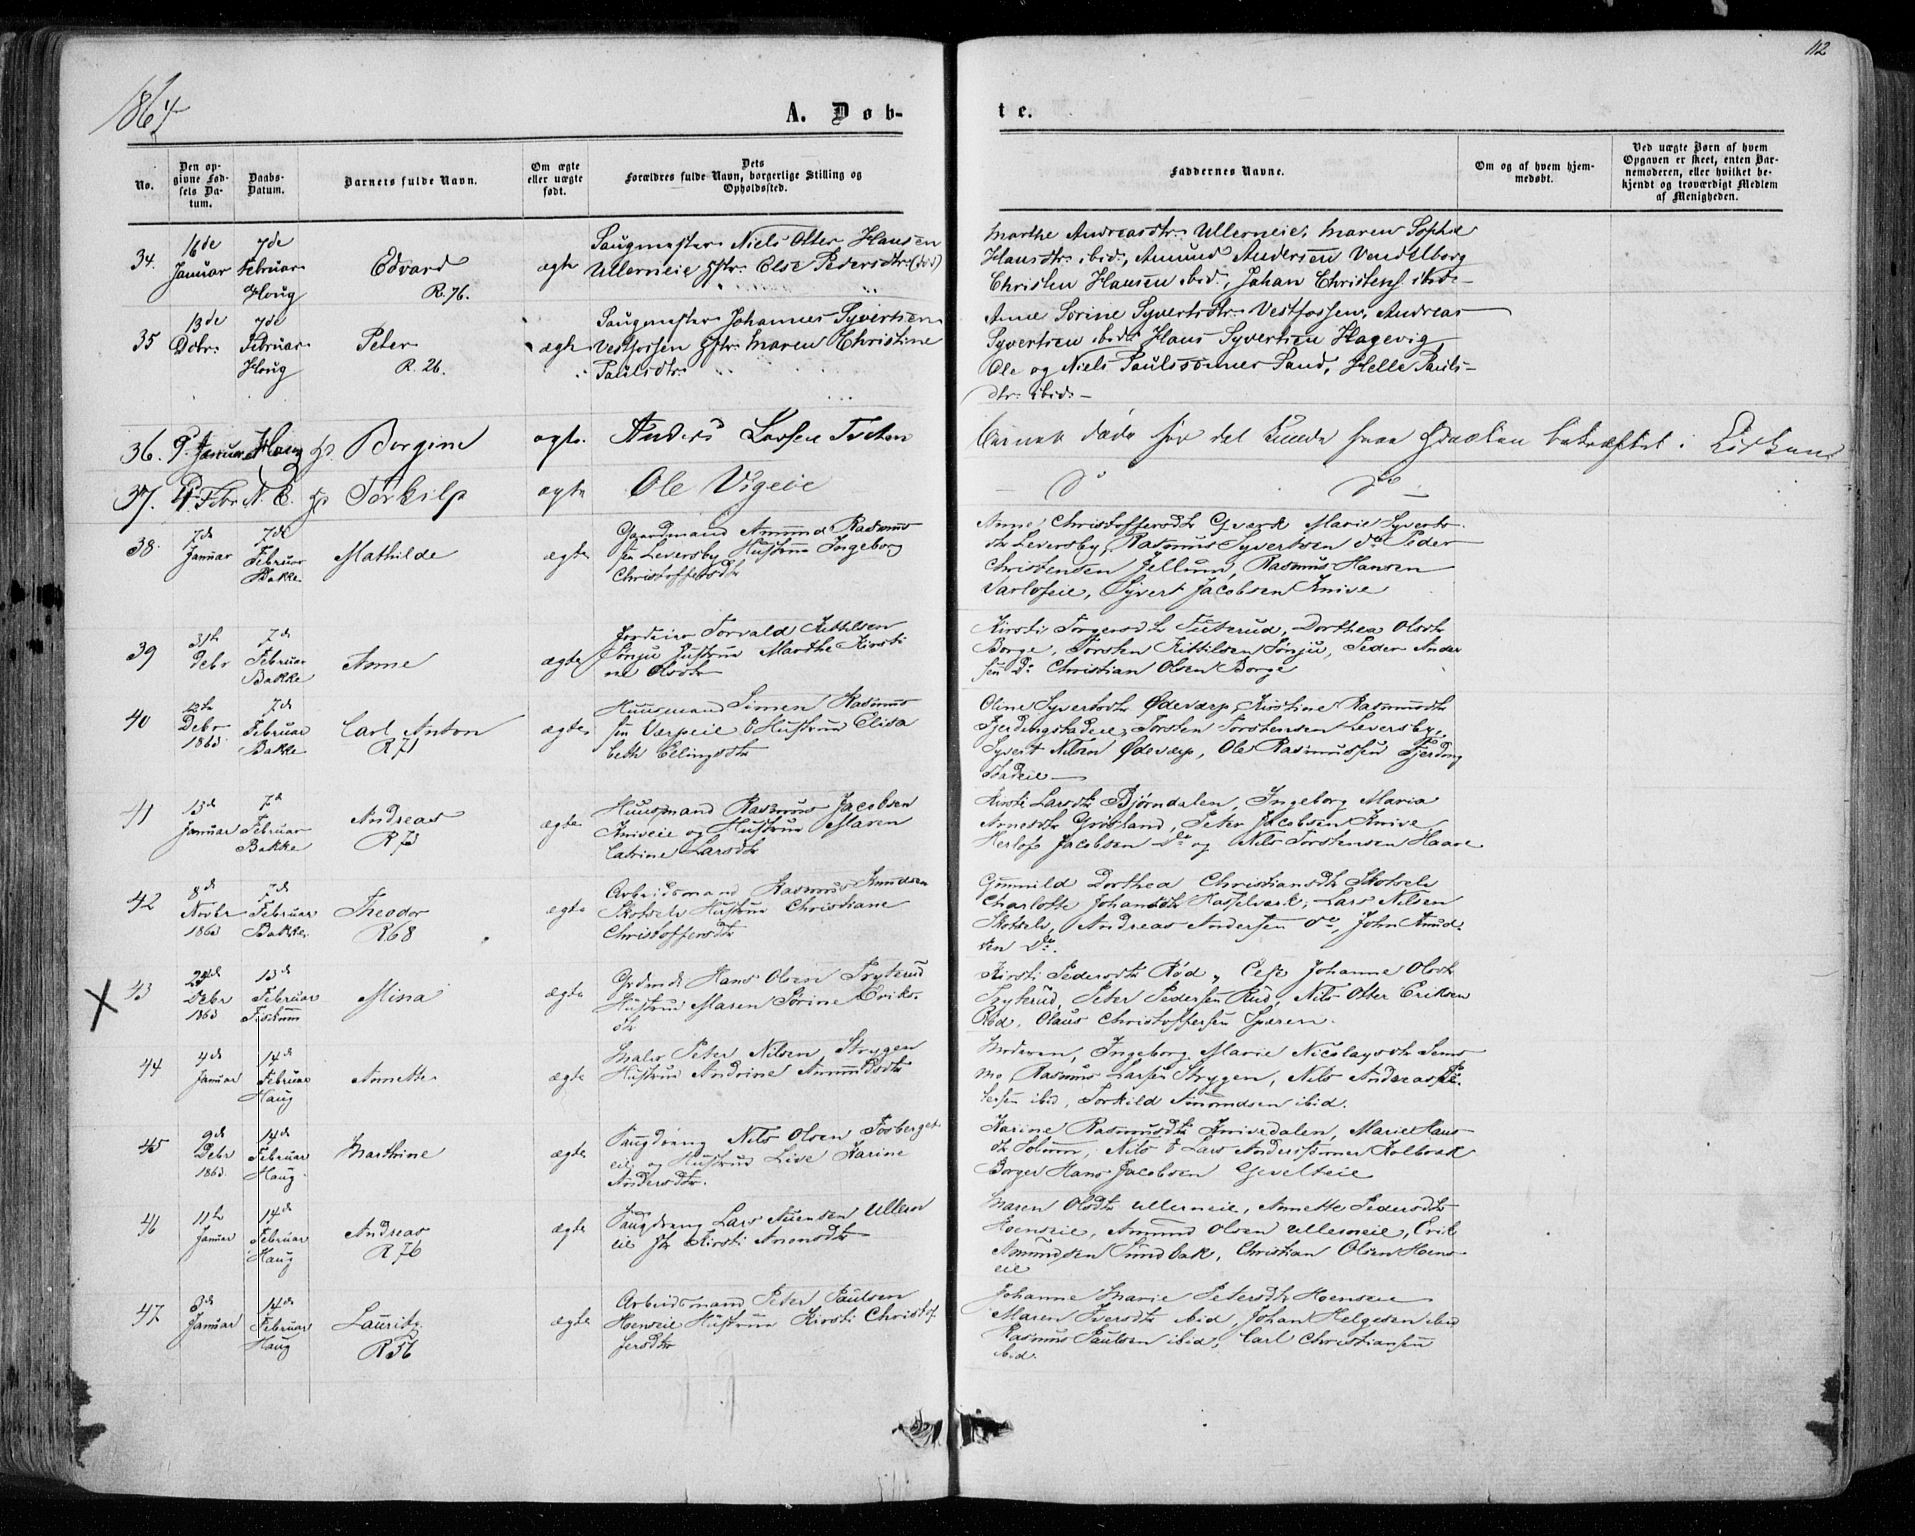 112
1864
A. Døb-
te.
No.
Den opgivne Fødsels Datum.
Daabs-Datum.
Barnets fulde Navn.
Om ægte eller uægte født.
Dets Forældres fulde Navn, borgerlige Stilling og Opholdssted.
Faddernes Navne.
Om og af hvem hjemmedøbt.
Ved uægte Børn af hvem Opgaven er skeet, enten Barnemoderen, eller hvilket bekjendt og troværdigt Medlem af Menigheden.
34. 16de Januar 7de Februar Houg Edvard R. 76. ægte
Saugmester Niels Otter Hansen
Ullerneie Hstr. Else Pedersdtr.
Marthe Andreasdtr. Ullerneie, Maren Sophie
Hansdtr. ibid, Amund Andersen Vendelborg
Christen Hansen ibid, Johan Christens. ibid
35 13de Dcbr. 7de Februar Houg Peter R. 26. ægte
Saugmester Johannes Syvertsen
Vestfossen Hstr. Maren Christine
Paulsdtr.
Anne Sørine Syvertsdtr. Vestfossen, Andreas
Syvertsen ibid, Hans Syvertsen Hagevig
Ole og Niels Paulssønner Sand, Helle Pauls-
dtr. ibid.
36. 9. Januar Houg Borgine ægte. Anders Larsen
37. 4 Febr Torkilp ægte Ole Vigeie
do do
38. 7de Januar 7de Februar Bakke Mathilde ægte
Gaardmand Amund Rasmus
sen Leversby Hustru Ingeborg
Christoffersdtr
Anne Christoffersdtr Marie Syverts
dtr Leversby, Rasmus Syvertsen do Peder
Christensen Jellum, Rasmus Hansen
Varloseie, Syvert Jacobsen Knive
39 31te Debr 7de Februar Bakke Anne ægte
Torvald Kittilsen
Sønju Hustru Marthe Kirsti
ne Olsdtr
Kirsti Torgersdtr Dorthea Olsdtr
Borge, Torsten Kittilsen Sønju, Peder Ander
sen Do Christian Olsen Borge
40 Debr 1863 7de Februar Bakke Carl Anton R 71 ægte
Huusmand Simen Rasmus
sen Værpeie & Hustrue Elisa
beth Ellingsdtr
Oline Syvertsdtr Ødeværp, Kirstine Rasmusdtr
Fjerdingstadeie, Torsten Torstensen Leversby,
Syvert Nilsen Ødeværp, Ole Rasmussen Fjerding
stadeie
41 13de Januar 7de Februar Bakke Andreas R 73 ægte
Huusmand Rasmus Jacobsen
Kniveie og Hustrue Maren
Catrine Larsdtr
Kirsti Larsdtr Bjørndalen, Ingeborg Maria
Arnesdtr Grøsland, Peter Jacobsen Knive
Herlof Jacobsen do og Nils Torstensen Haare
42 8de Novbr 1863 7de Februar Bakke Theodor R68 ægte
Arbeidsmand Rasmus Knudsen
Skotselv Hustrue Christiane
Christoffersdtr
Gunnild Dorthea Christiansdtr Skotselv
Charlotte Johansdtr Hasselværk, Lars Nilsen
Skotselv, Andreas Andersen do, John Knud-
sen do.
X 43 Debr 1863 13de Februar Fiskum Mina ægte
Grdmd Hans Olsen Tryterud
Hustrue Maren Sørine Eriks-
dtr
Kirsti Pedersdtr Rød, Johanne Olsdtr
Tryterud, Peter Pedersen Rud, Nils Otter Eriksen
Rød, Olaus Christoffersen Sparen.
44 4de Januar 14de Februar Haug Annette ægte
Maler Peter Nilsen Strygen
Hustrue Andrine Amundsdtr
Moderen, Ingeborg Marie Nicolaysdtr Sem
mo, Rasmus Larsen Strygen, Nils Andreas
ibid, Torkild Simondsen ibid.
45 9de Debr 1863 14de Februar Haug Marthine ægte
Saugdreng Nils Olsen Fosberget
eie og Hustrue Live Karine
Andersdtr.
Karine Rasmusdtr Knivedalen, Marie Hans
dtr Solum, Nils & Lars Anderssønner Kolbræk
Borger Hans Jacobsen Gevelteie
46 11te Januar 14de Februar Haug Andreas R 76 ægte
Saugdreng Lars Auensen Ullern
eie Hstr Kirsti Anonsdtr
Maren Olsdtr Ullerneie, Annette Pedersdtr
Hoenseie, Amund Olsen Ullerneie, Erik
Amundsen Sundbak, Christian Olsen Hoens
eie
47 Januar 14de Februar Haug Lauritz R 56 ægte
Arbeidsmand Peter Paulsen
Hoenseie Hustrue Kirsti Christof
fersdtr
Johanne Marie Petersdtr Hoenseie
Maren Iversdtr ibid, Johan Helgesen ibid
Rasmus Paulsen ibid, Carl Christiansen
ibid.